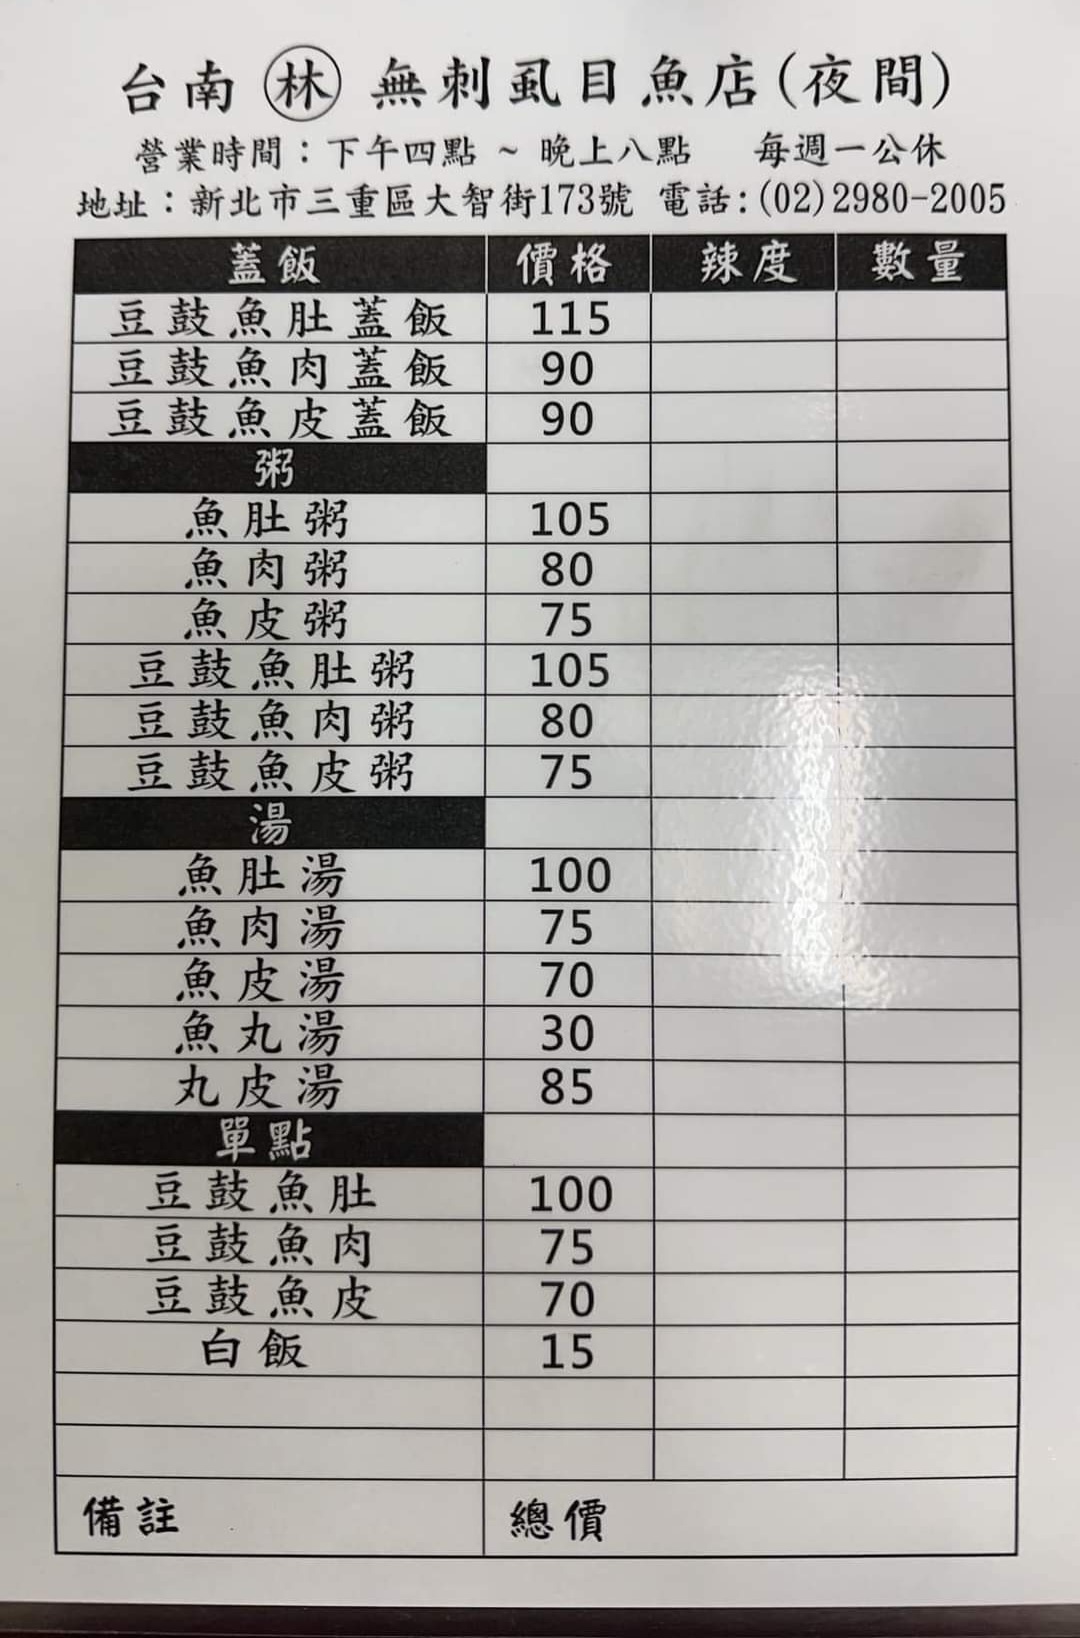 台南 林 無刺虱目魚店(夜間)
營業時間：下午四點 ~ 晚上八點 每週一公休
地址：新北市三重區大智街173號 電話:(02)2980-2005
蓋飯 價格 辣度 數量
豆鼓魚肚蓋飯 115
豆鼓魚肉蓋飯 90
豆鼓魚皮蓋飯 90
粥
魚肚粥 105
魚肉粥 80
魚皮粥 75
豆鼓魚肚粥 105
豆鼓魚肉粥 80
豆鼓魚皮粥 75
湯
魚肚湯 100
魚肉湯 75
魚皮湯 70
魚丸湯 30
丸皮湯 85
單點
豆鼓魚肚 100
豆鼓魚肉 75
豆鼓魚皮 70
白飯 15
備註 總價